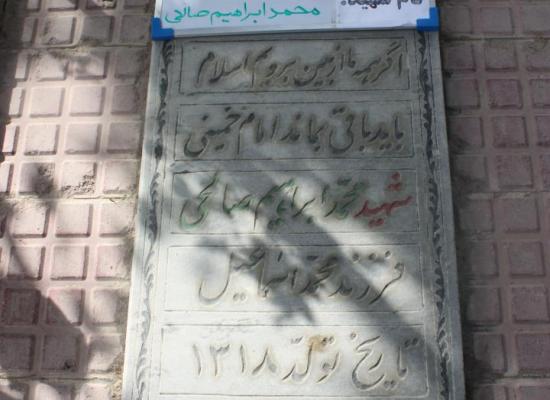 نام شهید:
محمد ابراهیم صالحی
اگر همه ما از بین برویم اسلام
باید باقی بماند امام خمینی
شهید محمد ابراهیم صالحی
فرزند محمد اسماعیل
تاریخ تولد ۱۳۱۸